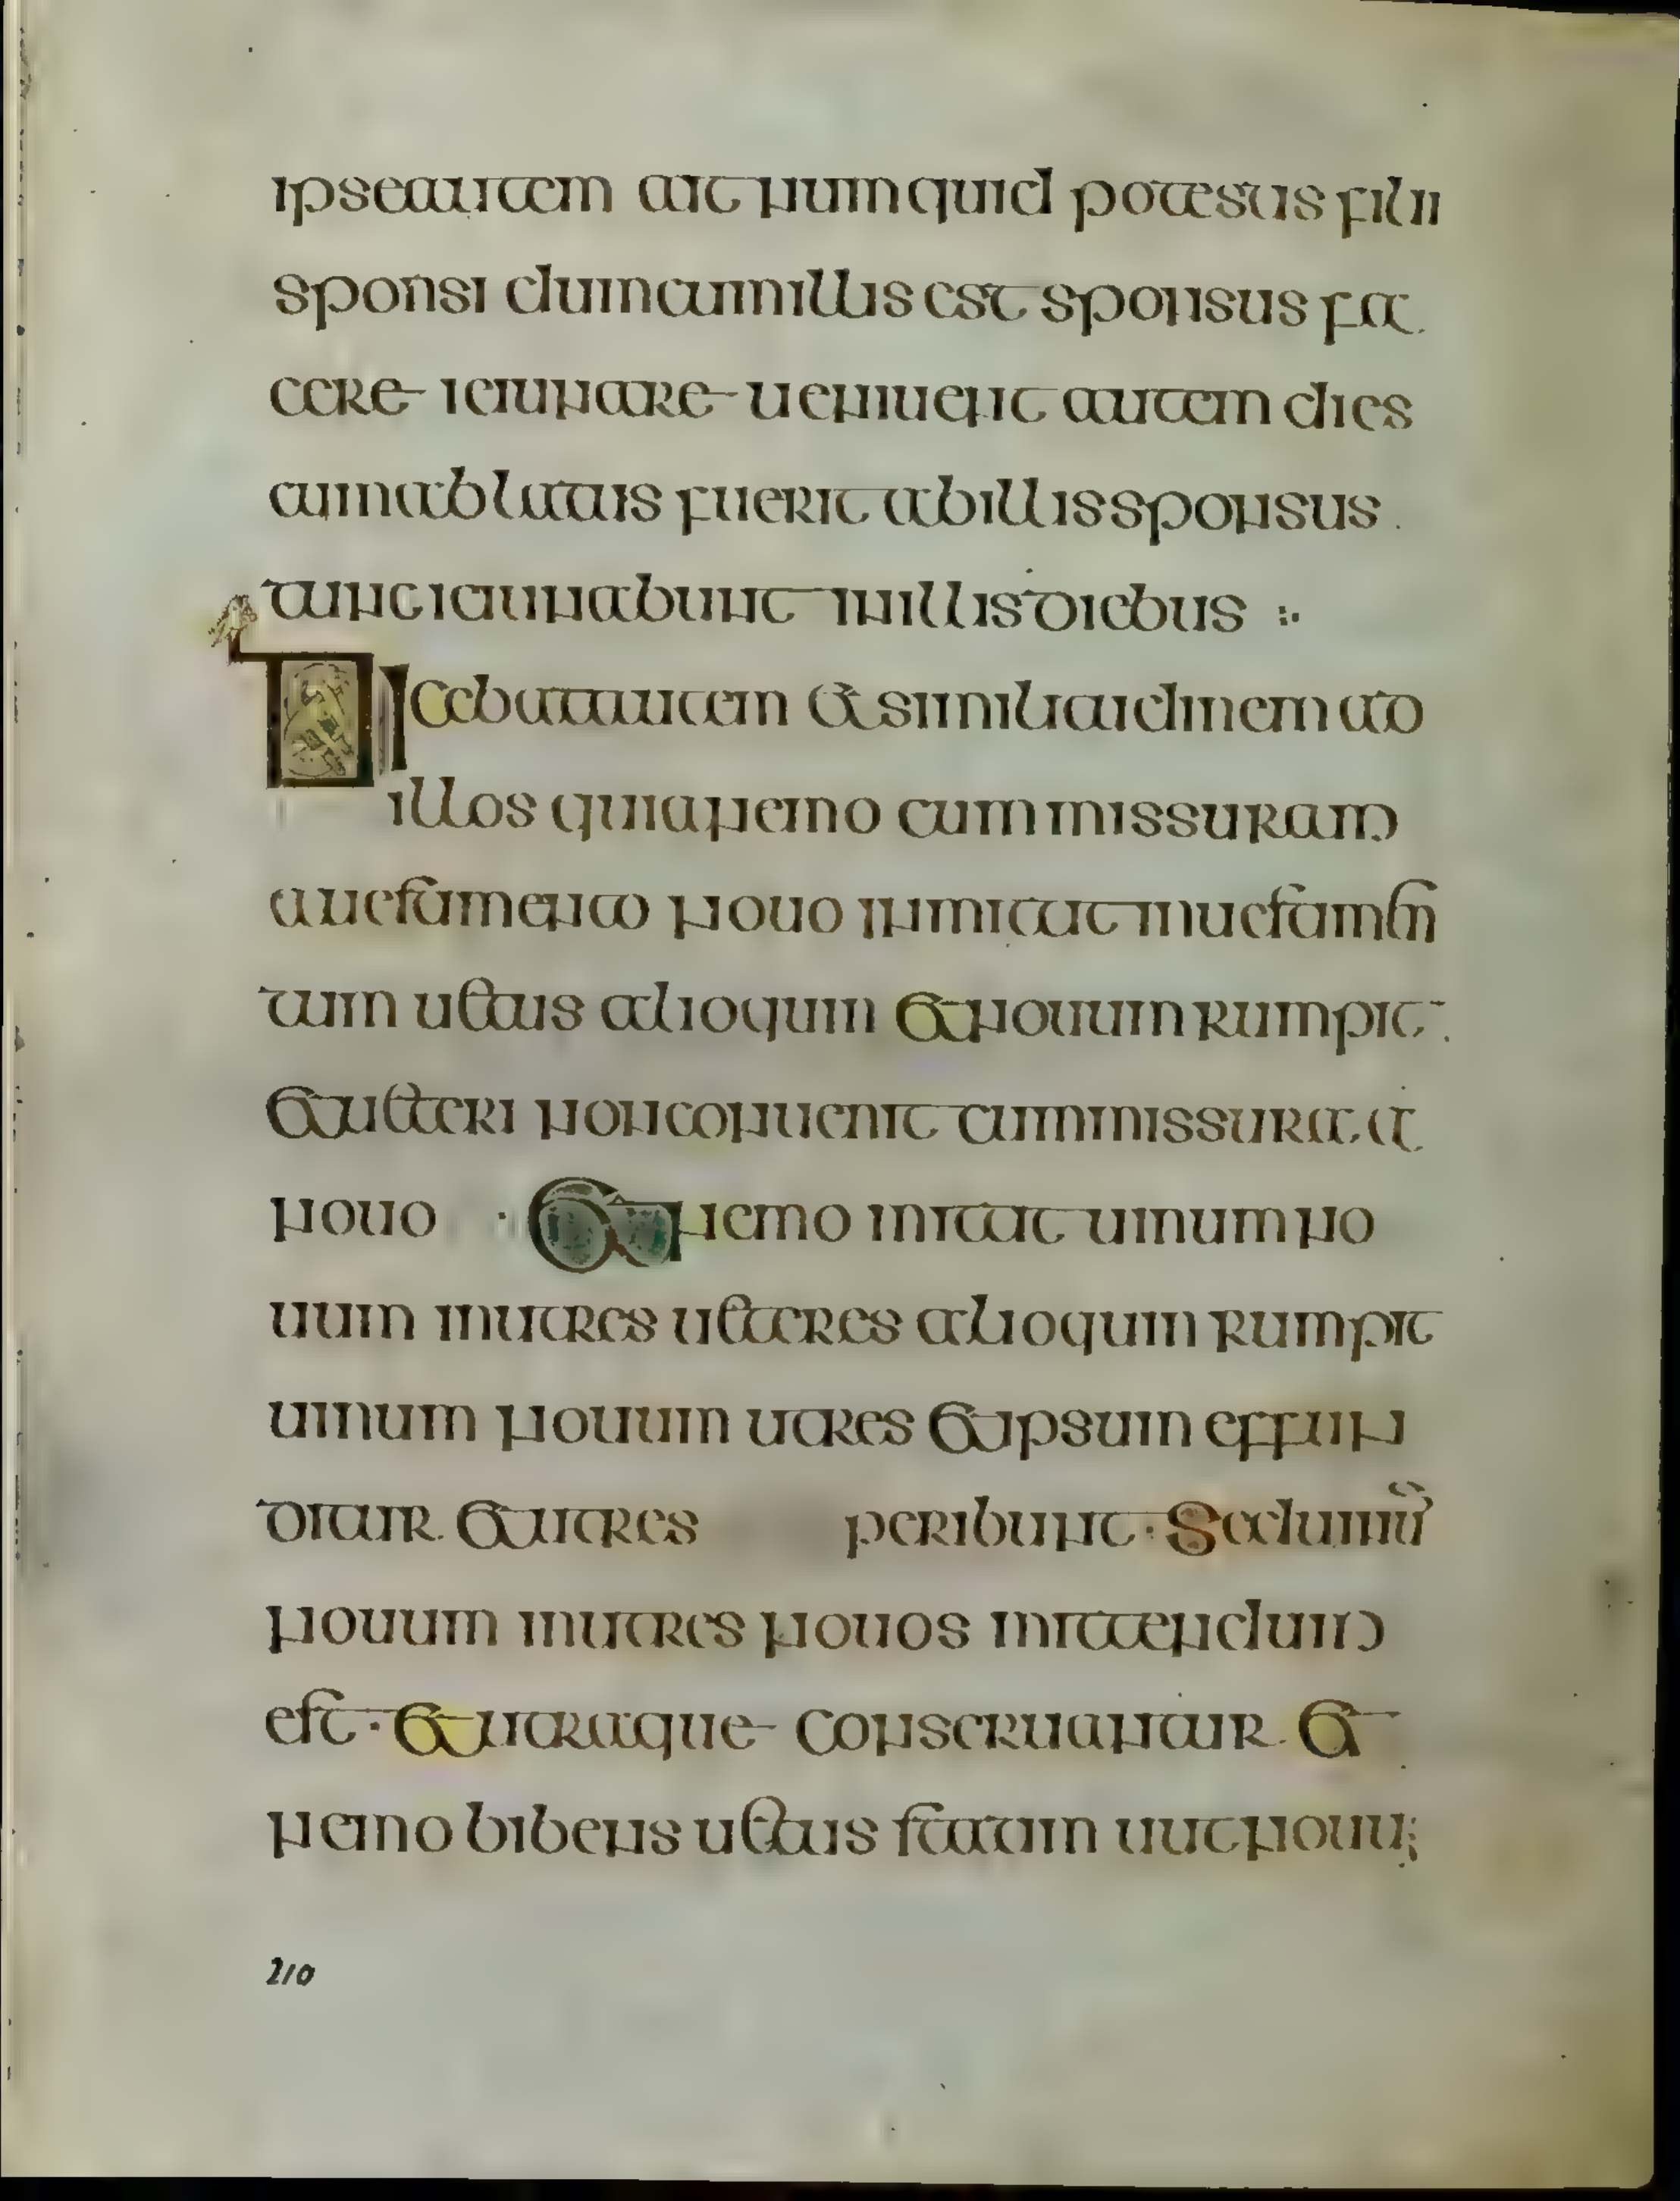 ipse autem ait numquid potestis filii
sponsi dum cum illis est sponsus fa
cere ieiunare uenient autem dies
cum ablatus fuerit ab illis sponsus
tunc ieiunabunt in illis diebus :·
Dicebat autem et similitudinem ad
illos quia nemo commissuram
a uestimento nouo inmitat in uestimen
tum uetus alioquin et nouum rumpit
et ueteri non conuenit commissura a
nouo · Et nemo mitat uinum no
uum in utres ueteres alioquin rumpit
uinum nouum utres et ipsum effun
ditur et utres peribunt · Sed uinū
nouum in utres nouos mittendum
est · et utraque conseruantur et
nemo bibens uetus statim uult nouū;
210